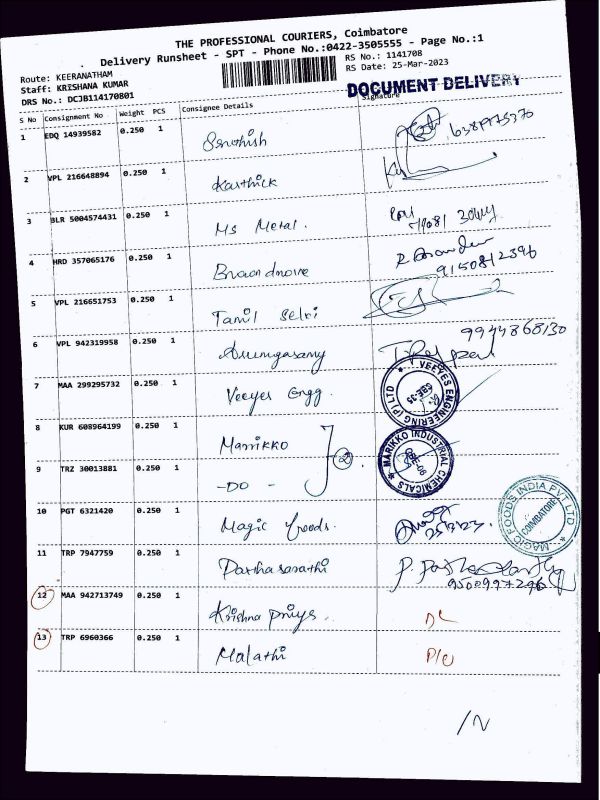 THE PROFESSIONAL COURIERS, Coimbatore
Delivery Runsheet - SPT - Phone No.:0422-3505555 - Page No.:1
Route: KEERANATHAM
RS No.: 1141708
Staff: KRISHANA KUMAR
RS Date: 25-Mar-2023
DRS No.: DCJB114170801
DOCUMENT DELIVERY
S No Consignment No Weight PCS Consignee Details Signature
1 EDQ 14939582 0.250 1
2 VPL 216648894 0.250 1 Karthick
3 BLR 5004574431 0.250 1 Ms Metal.
4 HRD 357065176 0.250 1
9150812396
5 VPL 216651753 0.250 1 Tamil Selvi
6 VPL 942319958 0.250 1 9944868130
7 MAA 299295732 0.250 1 Veeyes Engg.
VEEYES ENGINEERING (P) LTD
CBE-35
8 KUR 608964199 0.250 1 Marrikko
2
MARIKKO INDUSTRIAL CHEMICALS
9 TRZ 30013881 0.250 1 -DO-
10 PGT 6321420 0.250 1 Magic foods.
MAGIC FOODS INDIA PVT LTD
COIMBATORE
11 TRP 7947759 0.250 1 Parthasarathi
9500997296
12 MAA 942713749 0.250 1 Krishna Priya. DL
13 TRP 6960366 0.250 1 Malathi
/N